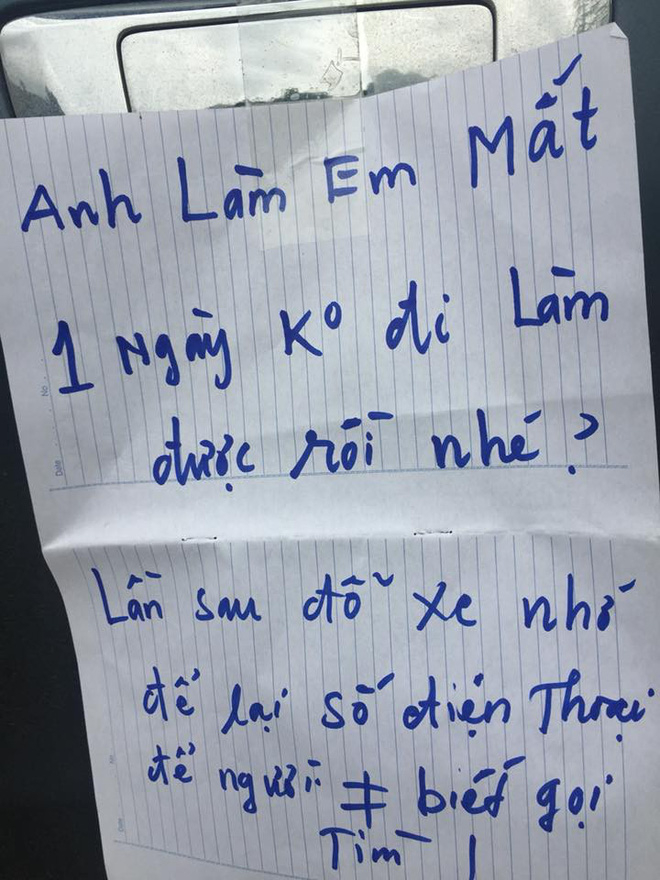 Anh Làm Em Mất
1 Ngày Ko đi Làm
được rồi nhé?
Lần sau đỗ xe nhớ
để lại số điện Thoại
để người ≠ biết gọi
Tìm !
No.
Date
No
Date